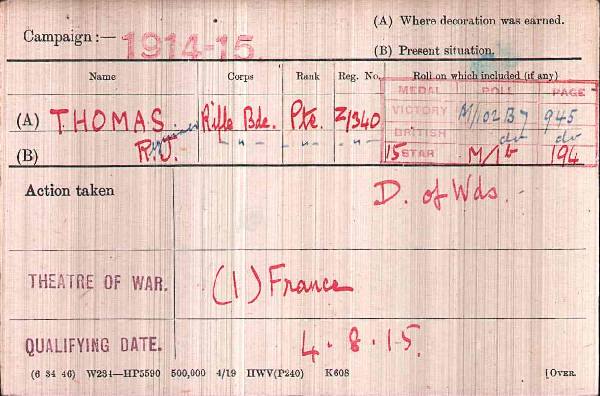 (A) Where decoration was earned.
Campaign :— 1914-15.
(B) Present situation.
Name Corps Rank Reg. No. Roll on which included (if any)
MEDAL ROLL PAGE
(A) THOMAS Rifle Bde. Pte. Z/1340 VICTORY M/102 B7 945
(B) R.J. - " - - " - - " - BRITISH do do
15 STAR 194
Action taken D. of Wds.
THEATRE OF WAR. (1) France
QUALIFYING DATE. 4.8.15.
(6 34 46) W234—HP5590 500,000 4/19 HWV(P240) K608 [OVER.